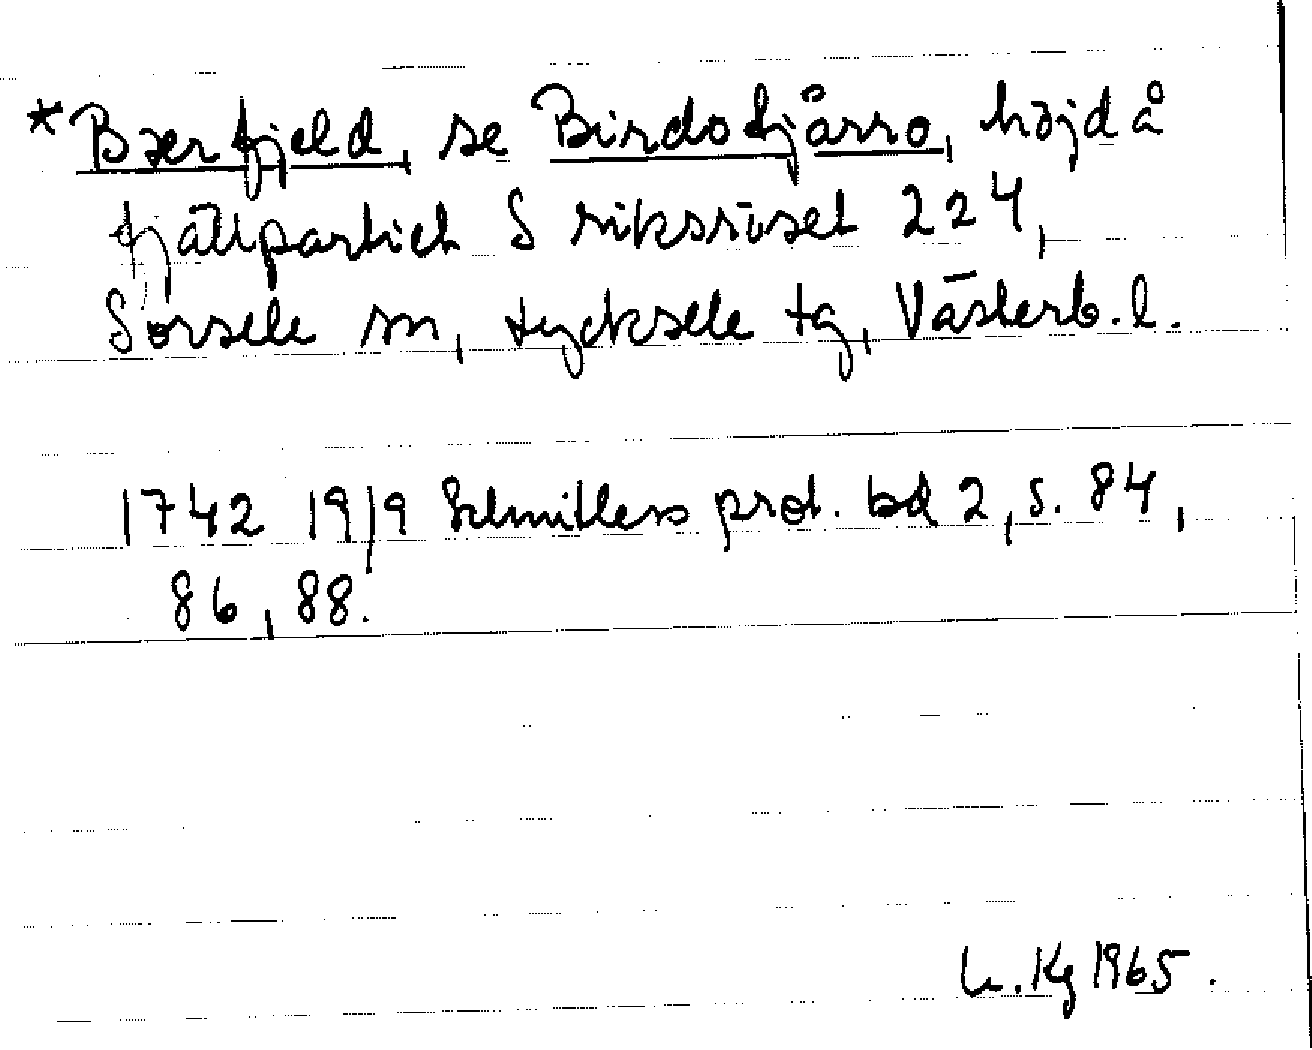 *Bærfjeld, se Birdotjårro, höjd å
fjällpartiet S riksröset 224,
Sorsele sn, Lycksele tg, Västerb. l.
1742 1919 Schnitlers prot. bd 2, s. 84,
86, 88.
Kg 1965.